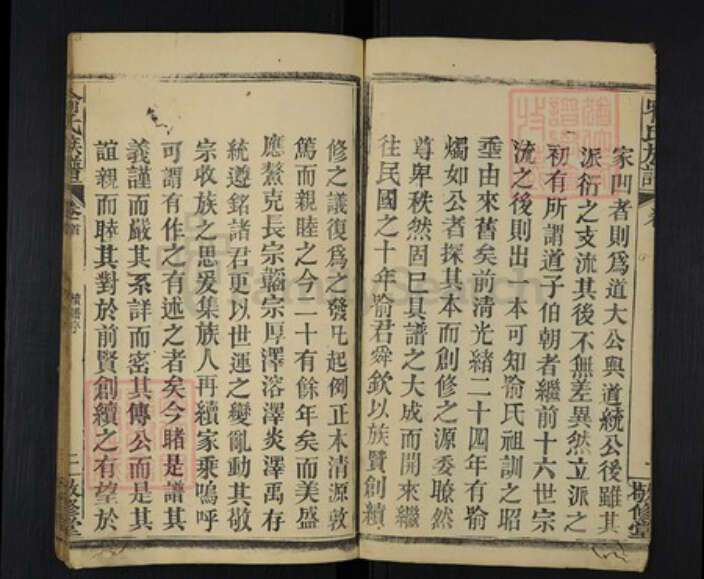 家凹者則爲道大公與道統公後雖其
派衍之支流其後不無差異然立派之
初有所謂道子伯朝者繼前十六世宗
流之後則出一本可知喻氏祖訓之昭
垂由來舊矣前清光緒二十四年有喻
燭如公者探其本而創修之源委瞭然
尊卑秩然固已具譜之大成而開來繼
往民國之十年喻君舜欽以族賢創續
修之議復爲之發凡起例正本清源敦
篤而親睦之今二十有餘年矣而美盛
應鰲克長宗韜宗厚澤溶澤炎澤禹存
統遵銘諸君更以世運之變亂動其敬
宗收族之思爰集族人再續家乘嗚呼
可謂有作之有述之者矣今睹是譜其
義謹而嚴其系詳而密其傳公而是其
誼親而睦其對於前賢創續之有望於
喻氏族譜
卷首
續譜序
二
敬修堂